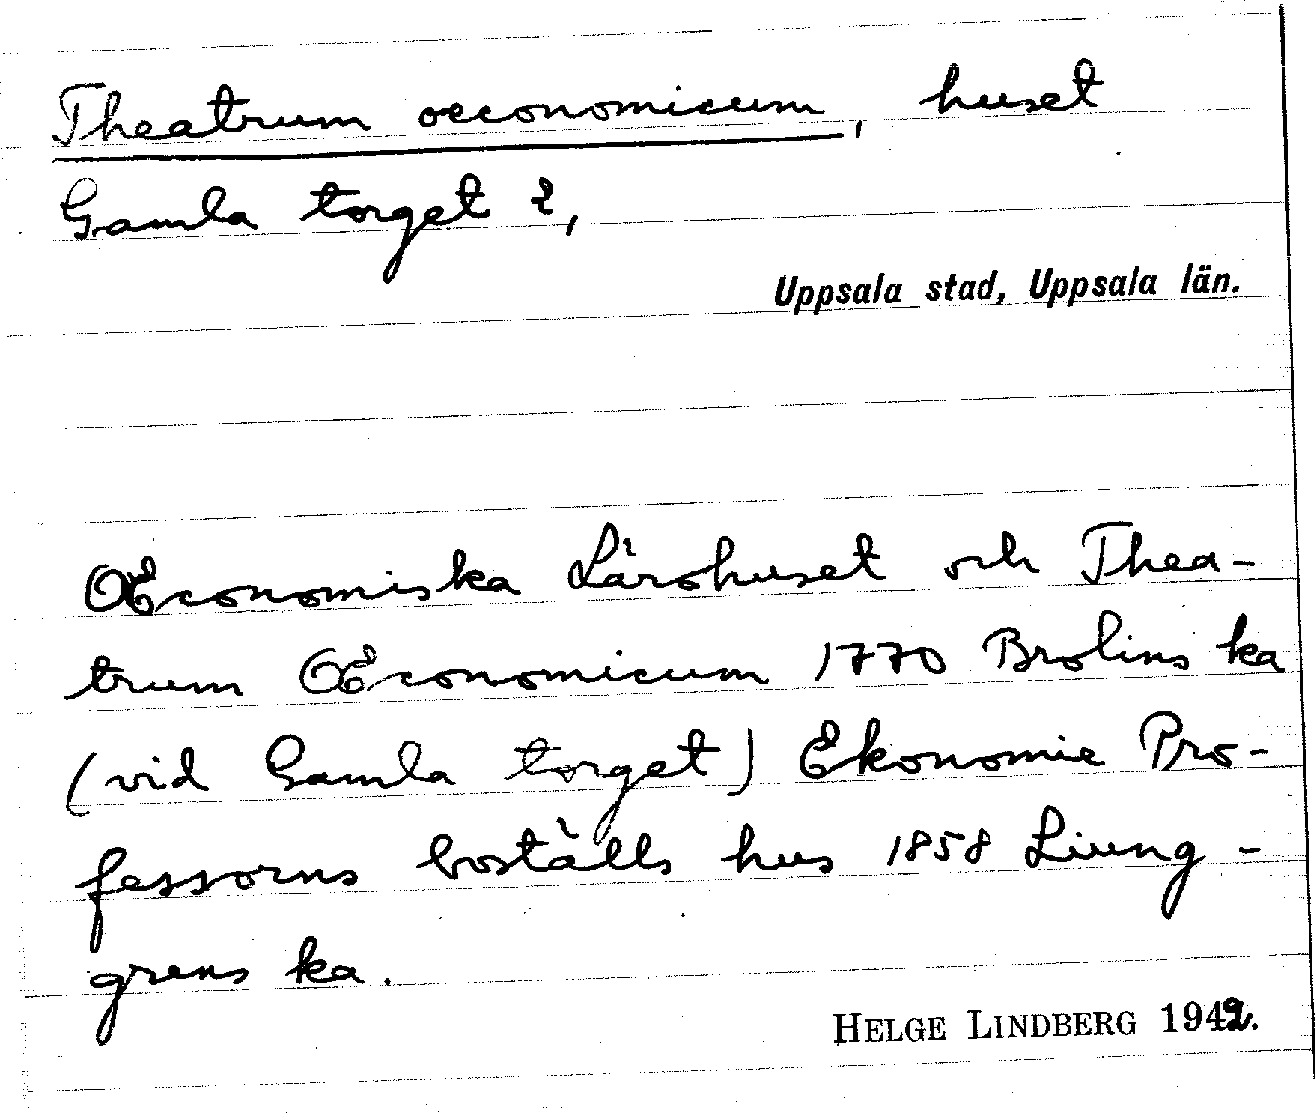 Theatrum oeconomicum, huset
Gamla torget 2,
Uppsala stad, Uppsala län.
OEconomiska Lärohuset och Thea-
trum OEconomicum 1770 Brolins ka
(vid Gamla torget) Ekonomie Pro-
fessorns boställs hus 1858 Liung-
grens ka.
HELGE LINDBERG 1942.